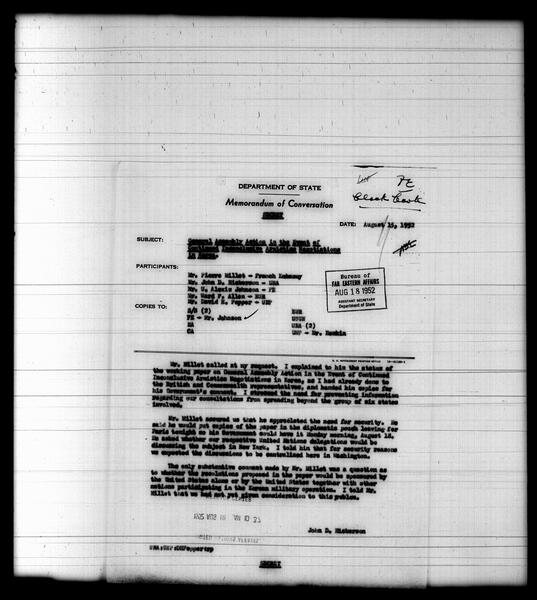 FE
Black Book
DEPARTMENT OF STATE
Memorandum of Conversation
SECRET
DATE: August 15, 1952
SUBJECT: General Assembly Action in the Event of
Continued Inconclusive Armistice Negotiations
in Korea.
PARTICIPANTS:
Mr. Pierre Millet - French Embassy
Mr. John D. Hickerson - UNA
Mr. U. Alexis Johnson - FE
Mr. Ward P. Allen - EUR
Mr. David H. Popper - UNP
Bureau of
FAR EASTERN AFFAIRS
AUG 18 1952
ASSISTANT SECRETARY
Department of State
COPIES TO:
S/S (2) EUR
FE - Mr. Johnson USUN
NA UNA (2)
CA UNP - Mr.
Mr. Millet called at my request. I explained to him the status of
the working paper on General Assembly Action in the Event of Continued
Inconclusive Armistice Negotiations in Korea, as I had already done to
the British and Commonwealth representatives, and handed him copies for
his Government's comment. I stressed the need for preventing information
regarding our consultations from spreading beyond the group of six states
involved.
Mr. Millet assured us that he appreciated the need for security. He
said he would put copies of the paper in the diplomatic pouch leaving for
Paris tonight so his Government could have it Monday morning, August 18.
He asked whether our respective United Nations delegations would be
discussing the subject in New York. I told him that for security reasons
we expected the discussions to be centralized here in Washington.
The only substantive comment made by Mr. Millet was a question as
to whether the resolutions proposed in the paper would be sponsored by
the United States alone or by the United States together with other
nations participating in the Korean military operation. I told Mr.
Millet that we had not yet given consideration to this problem.
John D. Hickerson
UNA:UNP:DHPopper:rp
SECRET